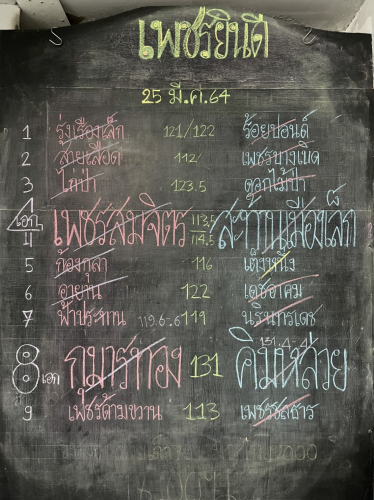 เพชรยินดี
25 มี.ค.64
1 รุ่งเรืองเล็ก 121/122 ร้อยปอนด์
2 สายเลือด 112 เพชรบางเบิด
3 ไก่ป่า 123.5 ดอกไม้ป่า
4 เอก เพชรสมจิตร 113.5 114.5 สะท้านเมืองเล็ก
5 ก้องกุลา 116 เต็งหนึ่ง
6 อายานิ 122 เดชอาคม
7 ฟ้าประทาน 119.6-6 119 นรินทรเดช
8 เอก กุมารทอง 131 131.4-4 คิมหล่วย
9 เพชรด้ามขวาน 113 เพชรชลธาร